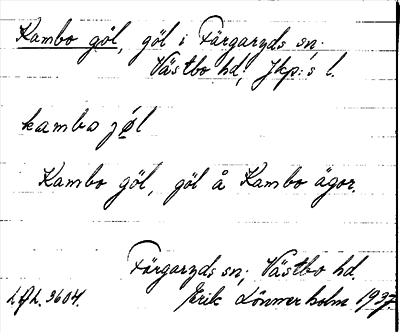 Kambo göl, göl i Färgaryds sn;
Västbo hd; Jkp:s l.
kambo jøl
Kambo göl, göl å Kambo ägor.
Färgaryds sn; Västbo hd.
Erik Lönnerholm 1937.